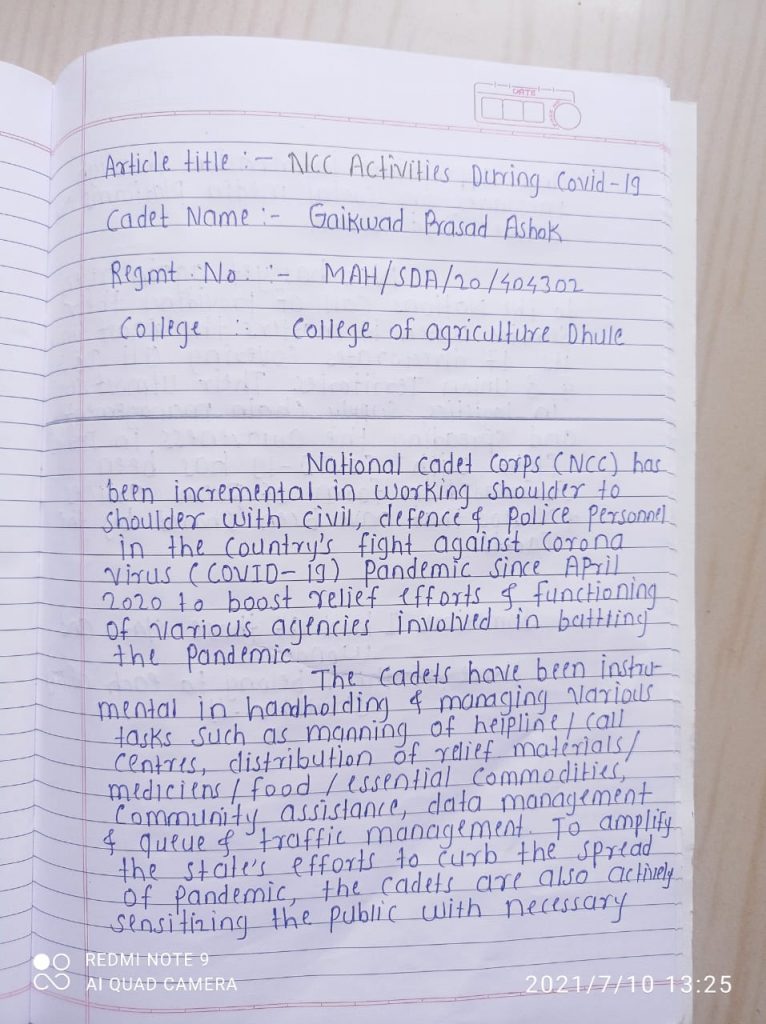 DATE
Article title :- NCC Activities During Covid-19
Cadet Name :- Gaikwad Prasad Ashok
Regmt. No. :- MAH/SDA/20/404302
College :- College of agriculture Dhule
National Cadet Corps (NCC) has
been incremental in working shoulder to
shoulder with civil, defence & police personnel
in the country's fight against Corona
Virus (COVID-19) Pandemic since April
2020 to boost relief efforts & functioning
of various agencies involved in battling
the pandemic
The cadets have been instru-
mental in handholding & managing various
tasks such as manning of helpline/call
centres, distribution of relief materials/
mediciens/food/essential commodities,
community assistance, data management
& queue & traffic management. To amplify
the state's efforts to curb the spread
of pandemic, the cadets are also actively
sensitizing the public with necessary
REDMI NOTE 9
AI QUAD CAMERA
2021/7/10 13:25